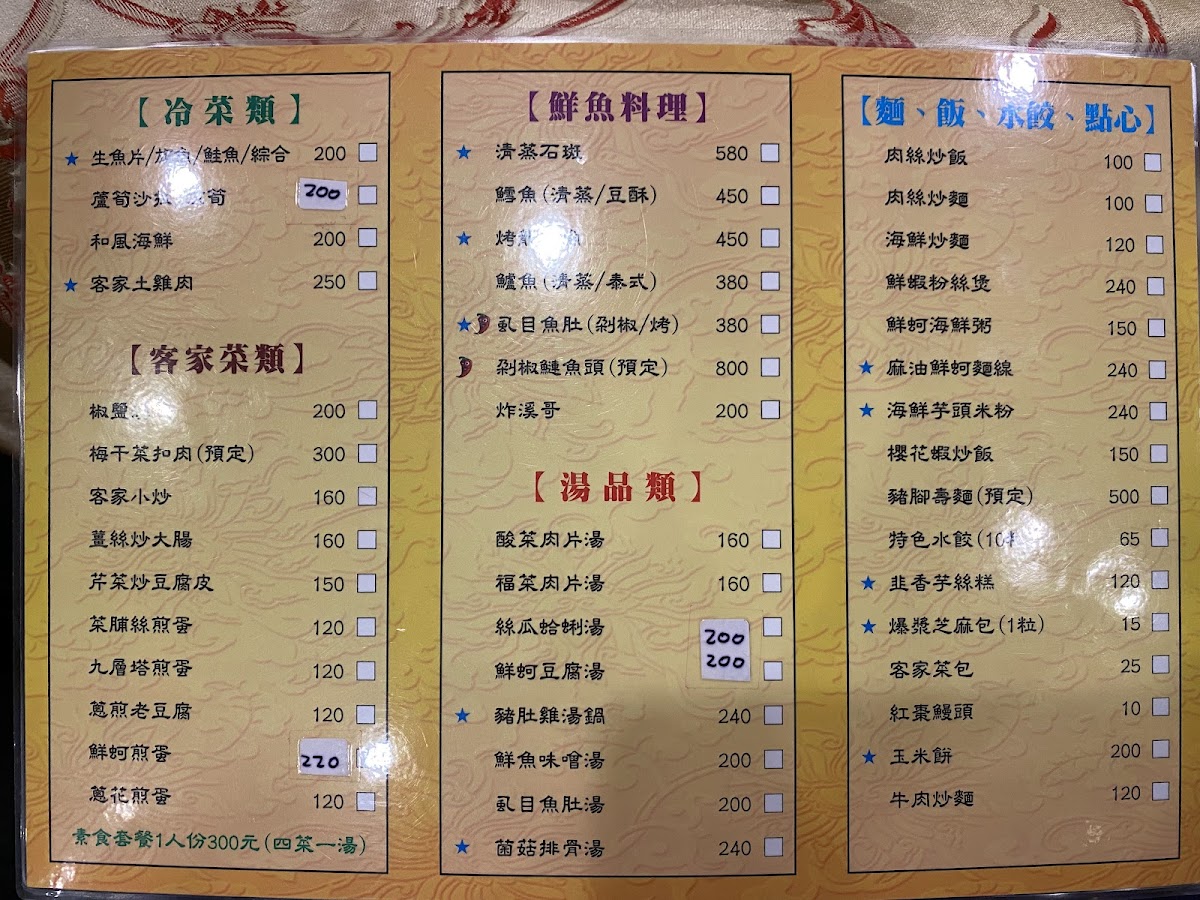 【冷菜類】
★ 生魚片/旗魚/鮭魚/綜合 200
蘆筍沙 筍 200
和風海鮮 200
★ 客家土雞肉 250
【客家菜類】
椒鹽 200
梅干菜扣肉(預定) 300
客家小炒 160
薑絲炒大腸 160
芹菜炒豆腐皮 150
菜脯絲煎蛋 120
九層塔煎蛋 120
蔥煎老豆腐 120
鮮蚵煎蛋 220
蔥花煎蛋 120
素食套餐1人份300元(四菜一湯)
【鮮魚料理】
★ 清蒸石斑 580
鱈魚(清蒸/豆酥) 450
★ 烤 魚 450
鱸魚(清蒸/泰式) 380
★ 虱目魚肚(剁椒/烤) 380
剁椒鰱魚頭(預定) 800
炸溪哥 200
【湯品類】
酸菜肉片湯 160
福菜肉片湯 160
絲瓜蛤蜊湯 200
鮮蚵豆腐湯 200
★ 豬肚雞湯鍋 240
鮮魚味噌湯 200
虱目魚肚湯 200
★ 菌菇排骨湯 240
【麵、飯、水餃、點心】
肉絲炒飯 100
肉絲炒麵 100
海鮮炒麵 120
鮮蝦粉絲煲 240
鮮蚵海鮮粥 150
★ 麻油鮮蚵麵線 240
★ 海鮮芋頭米粉 240
櫻花蝦炒飯 150
豬腳壽麵(預定) 500
特色水餃(10 65
★ 韭香芋絲糕 120
★ 爆漿芝麻包(1粒) 15
客家菜包 25
紅棗饅頭 10
★ 玉米餅 200
牛肉炒麵 120